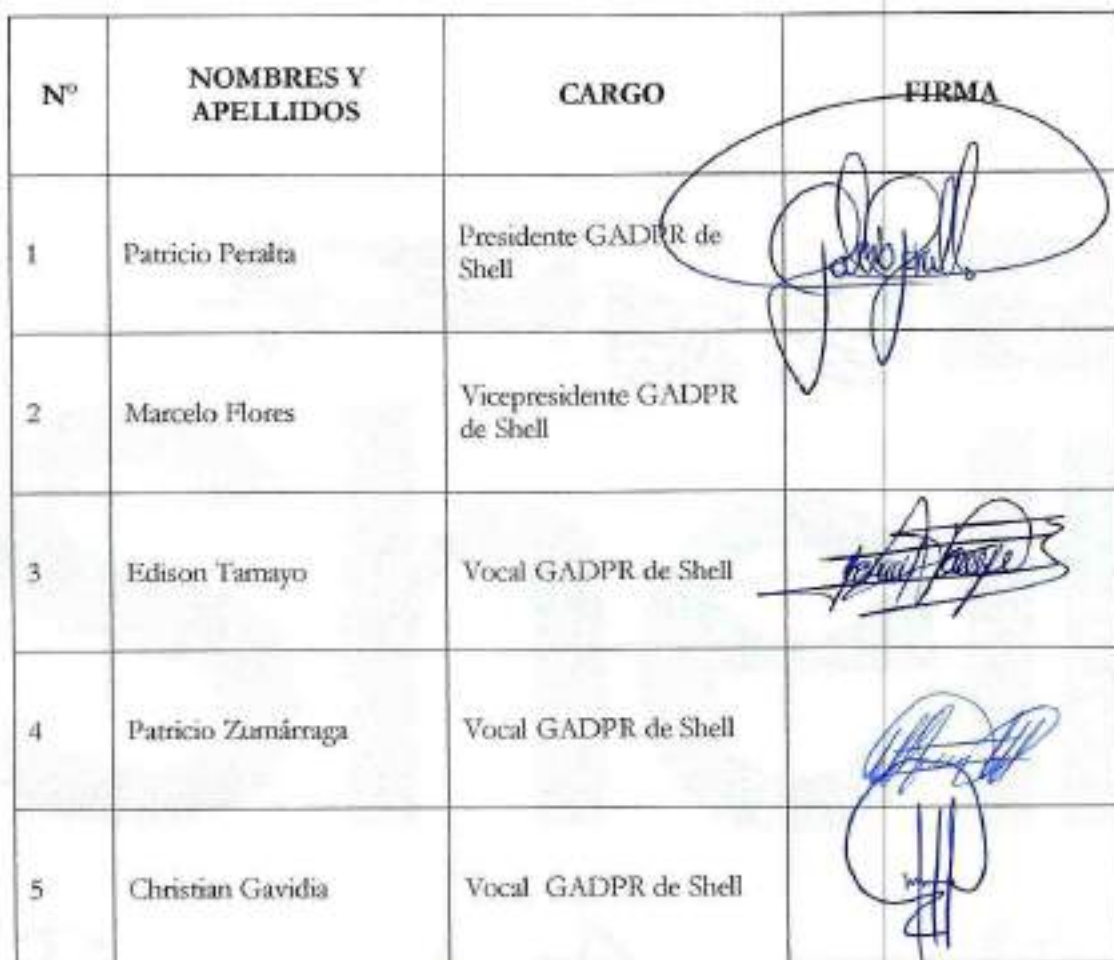 N° NOMBRES Y APELLIDOS CARGO FIRMA
1 Patricio Peralta Presidente GADPR de Shell
2 Marcelo Flores Vicepresidente GADPR de Shell
3 Edison Tamayo Vocal GADPR de Shell
4 Patricio Zumárraga Vocal GADPR de Shell
5 Christian Gavidia Vocal GADPR de Shell